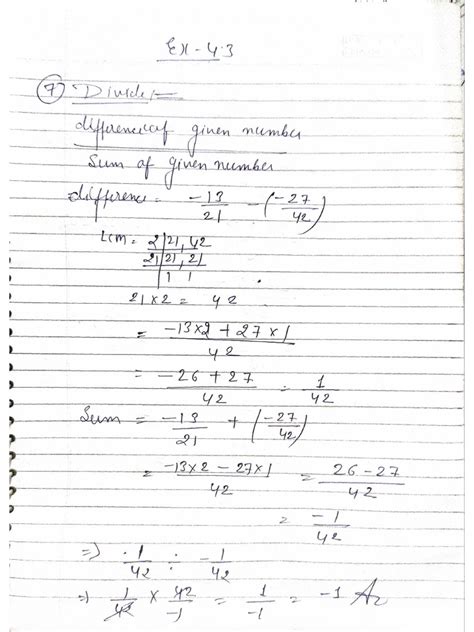 Ex - 4.3
⑦ Divide :-
difference of given number
Sum of given number
difference = -13/21 - (-27/42)
LCM = 2 | 21, 42
21 | 21, 21
| 1 1
21 × 2 = 42
= -13×2 + 27×1 / 42
= -26 + 27 / 42 = 1/42
Sum = -13/21 + (-27/42)
= -13×2 - 27×1 / 42 = 26 - 27 / 42
= -1/42
=> 1/42 ÷ -1/42
=> 1/42 × 42/-1 = 1/-1 = -1